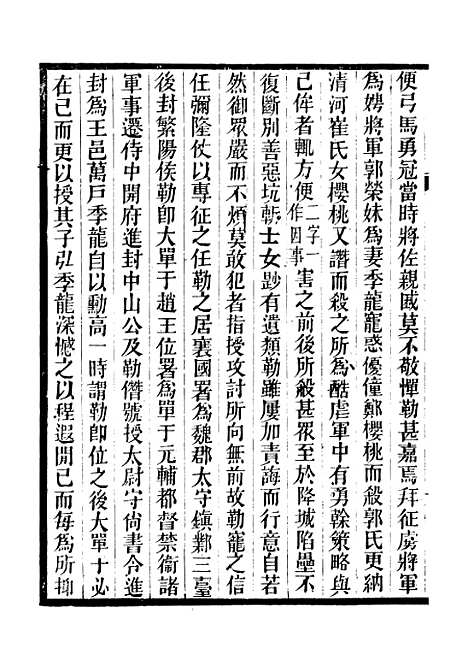 便弓馬勇冠當時將佐親戚莫不敬憚勒甚嘉焉拜征虜將軍
爲娉將軍郭榮妹爲妻季龍寵惑優僮鄭櫻桃而殺郭氏更納
清河崔氏女櫻桃又譖而殺之所爲酷虐軍中有勇幹策略與
己侔者輒方便二字一作因事害之前後所殺甚衆至於降城陷壘不
復斷別善惡坑斬士女尠有遺類勒雖屢加責誨而行意自若
然御眾嚴而不煩莫敢犯者指授攻討所向無前故勒寵之信
任彌隆仗以專征之任勒之居襄國署爲魏郡太守鎮鄴三臺
後封繁陽侯勒卽大單于趙王位署爲單于元輔都督禁衞諸
軍事遷侍中開府進封中山公及勒僭號授太尉守尚書令進
封爲王邑萬戶季龍自以勳高一時謂勒卽位之後大單于必
在己而更以授其子弘季龍深憾之以程遐閒己而每爲所抑